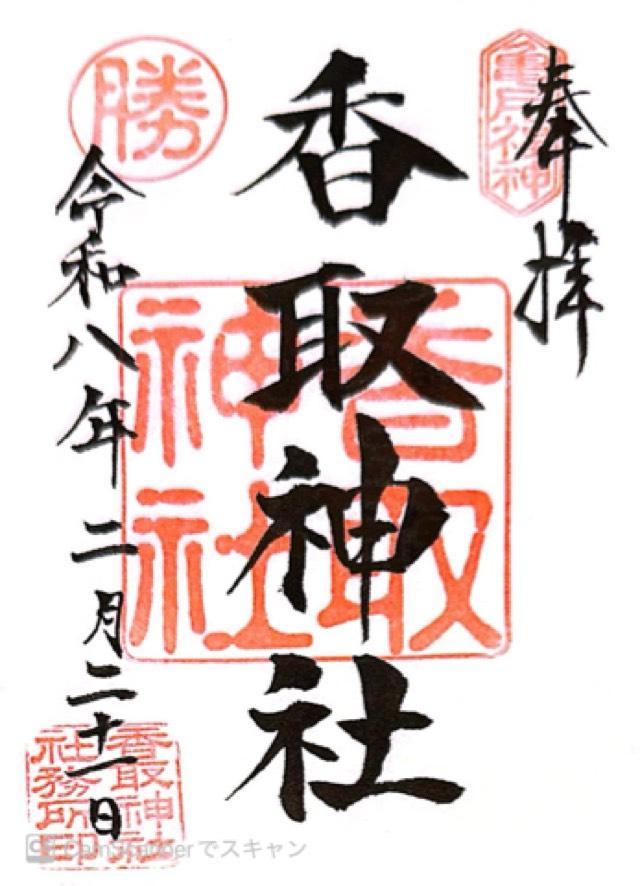 奉拝
亀戸祖神
香取神社
香取神社
勝
令和八年二月二十一日
香取神社
社務所印
CamScannerでスキャン